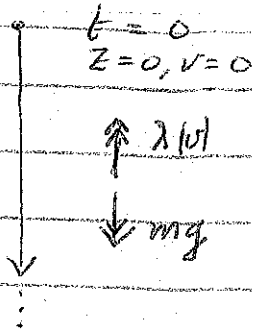 t = 0
z = 0, v = 0
λ|v|
mg